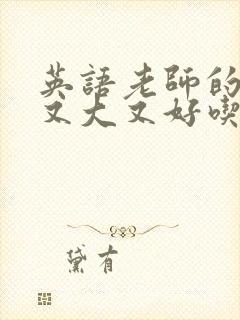 英語老師的
又大又好喫
黛有